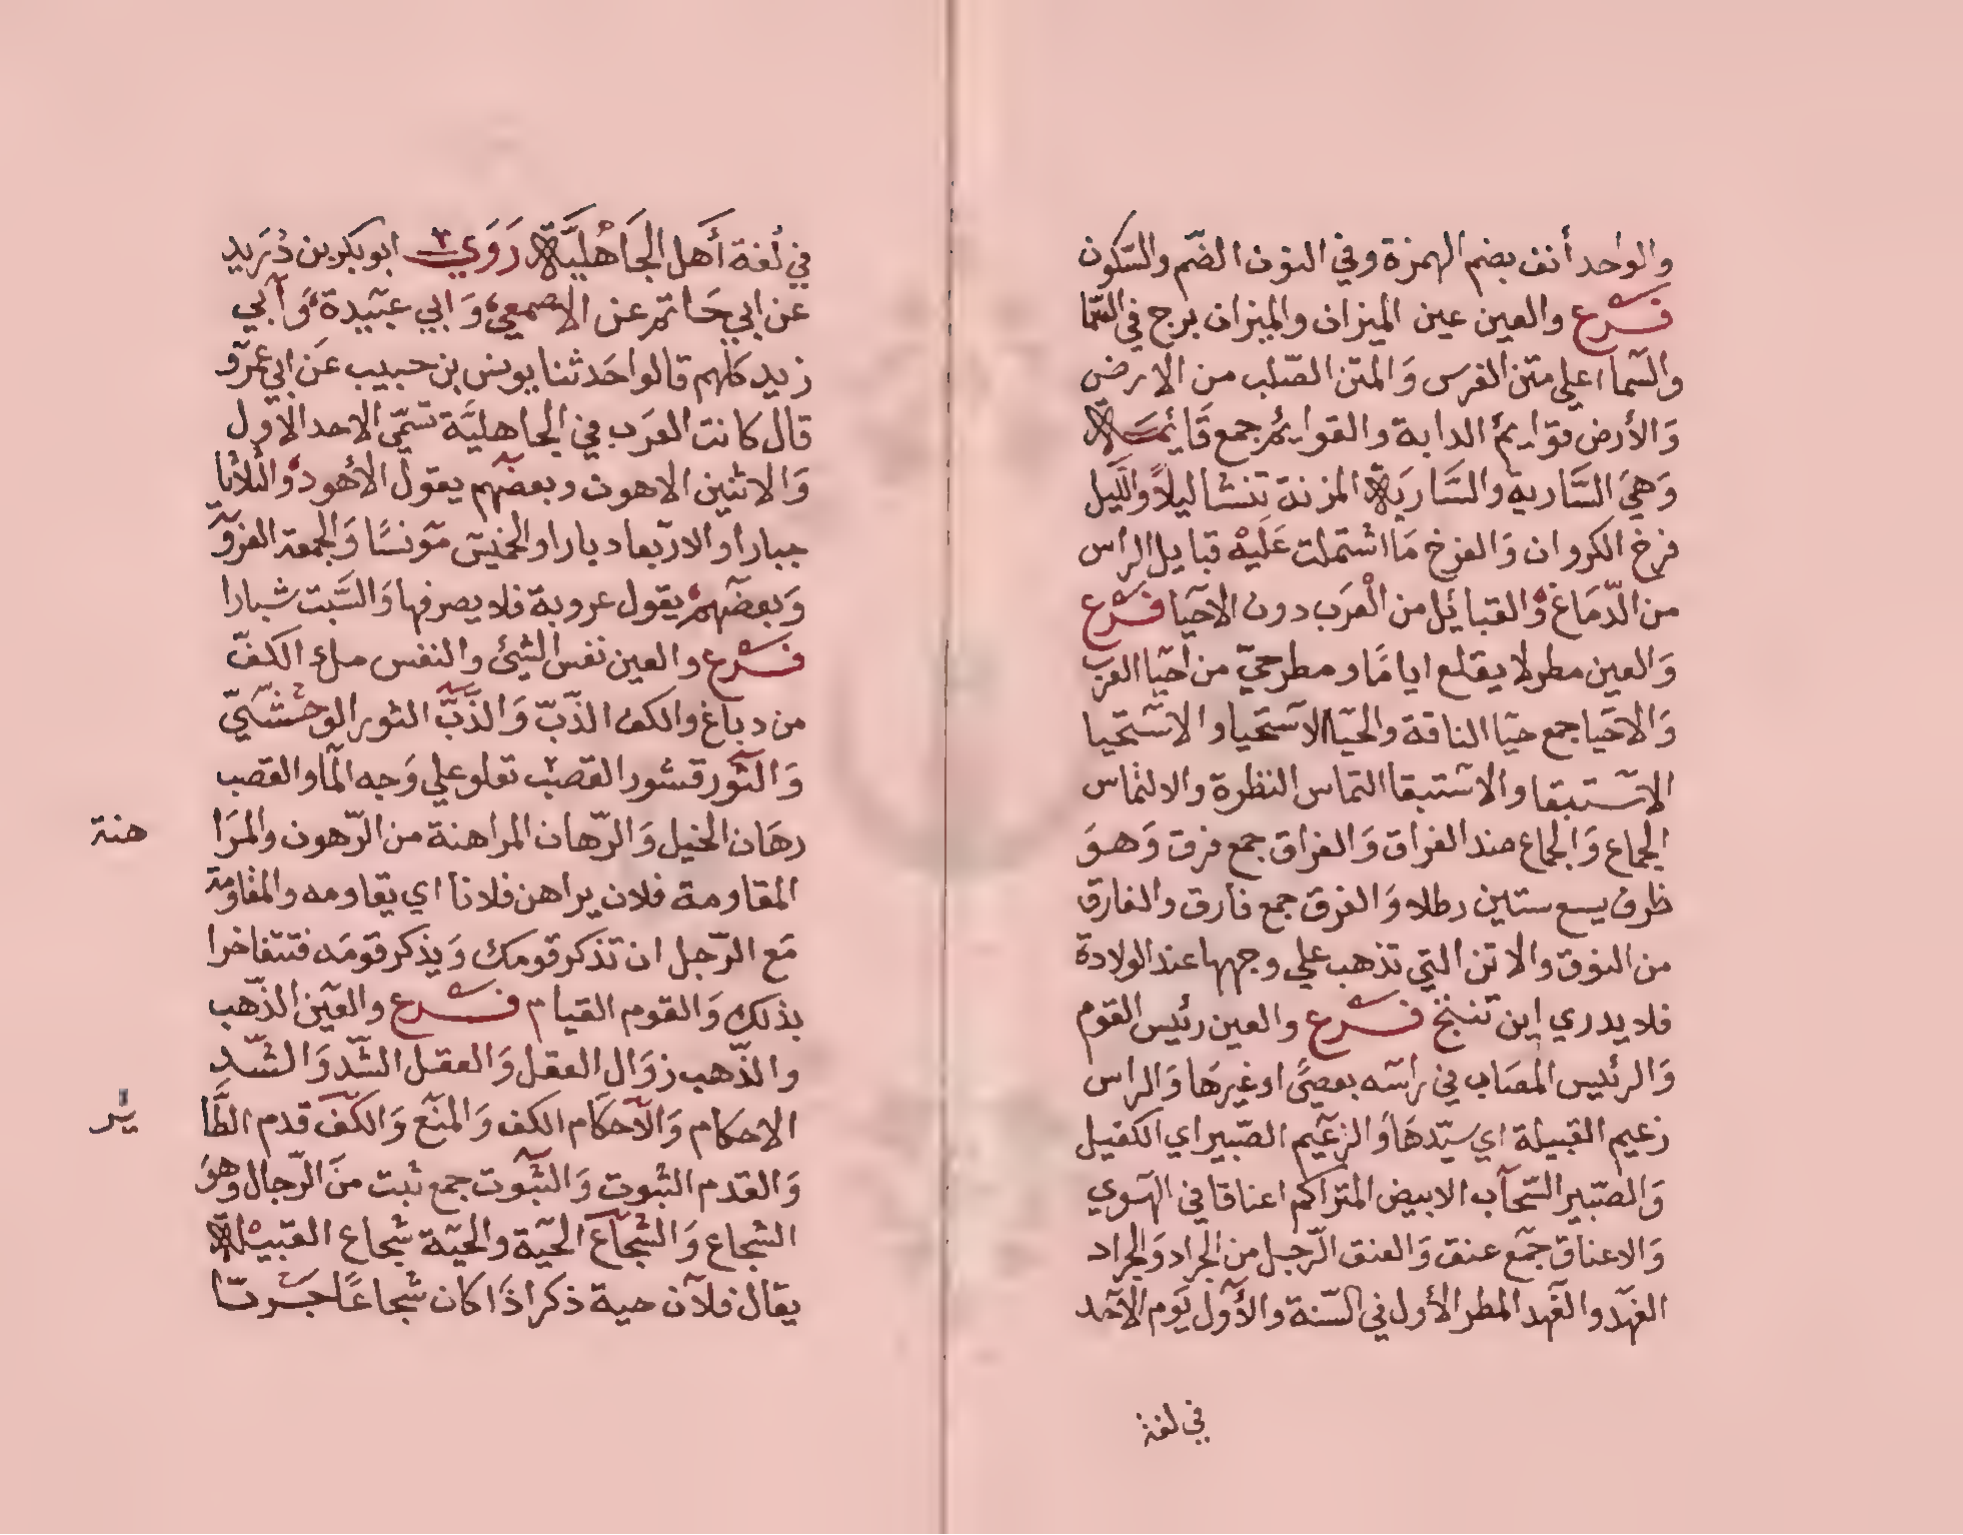 والواحد أنف بضم الهمزة وفي النون الضّم والسّكون
فَرع والعين عين الميزان والميزان برج في السّما
والسّماء اعلي متن الفرس وَالمتن الصّلب من الارض
وَالأرض قوايمُ الدابة والقوايمُ جمع قَائمَة
وَهيَ السَّارية والسَّاريَة المزنة تنشا ليلاً واللّيل
فرخ الكروان وَالفرخ مَا اشتملت عَليْه قبايل الراس
من الدّمَاغ وَالقبائل من الْعرَب دون الاحيَا فَرع
وَالعين مطر لا يقلع ايامًا ومطر حيّ من احيَا العرَب
وَالاحيَا جمع حيَا الناقة والحيَا الاستحيا والاستحيا
الاستبقا والاستبقا التماس النظرة والالتماس
الجماع وَالجماع ضد الفراق وَالفراق جمع فرق وَهوَ
ظرف يسع ستين رطلا وَالفرق جمع فارق والفارق
من النوق والاتن التي تذهب علي وجهها عند الولادة
فلا يدري اين تنتج فَرع والعين رئيس القوم
وَالرئيس المصَاب في راسه بعصًى اوغيرهَا وَالراس
زعيم القبيلة اي سيّدهَا وَالزعيم الصّبير اي الكفيل
وَالصّبير السّحاب الابيض المتراكم اعناقا في الهَوي
وَالاعناق جمع عنق وَالعنق الرّجل من الجراد وَالجراد
العَهد والعَهد المطر الأول في السّنة والأول يَوم الأحد
في لغة
في لُغة أَهل الجَاهليَّة رَوَي ابو بكر بن دُرَيد
عن ابي حَاتم عن الاصمعي وَابي عبَيدة وَأبي
زيد كلهم قالوا حَدثنا يونس بن حبيب عَن ابي عمرو
قال كانت العرَب في الجاهليَّة تسمّي الاحد الاول
وَالاثنين الاهون وبعضهم يقول الأهود وَالثلاثا
جبارا والاربعا دبارا والخميس مَونسًا وَالجمعة العروَ
وَبعضهم يقول عروبة فلا يصرفها وَالسَّبت شبارا
فَرع والعين نفس الشّئ والنفس ملء الكفّ
من دباغ والكف الذّبّ وَالذّبَّ الثور الوحشَيّ
وَالثّور قشور القصب تعلو علي وَجه المَا والقصب
رهَان الخيل وَالرّهان المراهنة من الرّهون والمرَا
هنة
المقاومة فلان يراهن فلانا اي يقاومه والمقاومة
مَع الرّجل ان تذكر قومك وَيذكر قومَه فتتفاخرا
بذلك وَالقوم القيام فَرع والعَين الذّهب
والذّهب زوَال العقل وَالعقل الشّد وَالشّد
الاحكام وَالاحكَام الكف وَالمنع وَالكَف قدم الطَّا
ير
وَالقدم الثبوت وَالثبوت جمع ثبت منَ الرّجال وهوَ
الشجاع وَالشجَاع الحيّة والحيّة شجاع القبيلَة
يقال فلان حية ذكر اذَا كان شجاعًا جَرتا